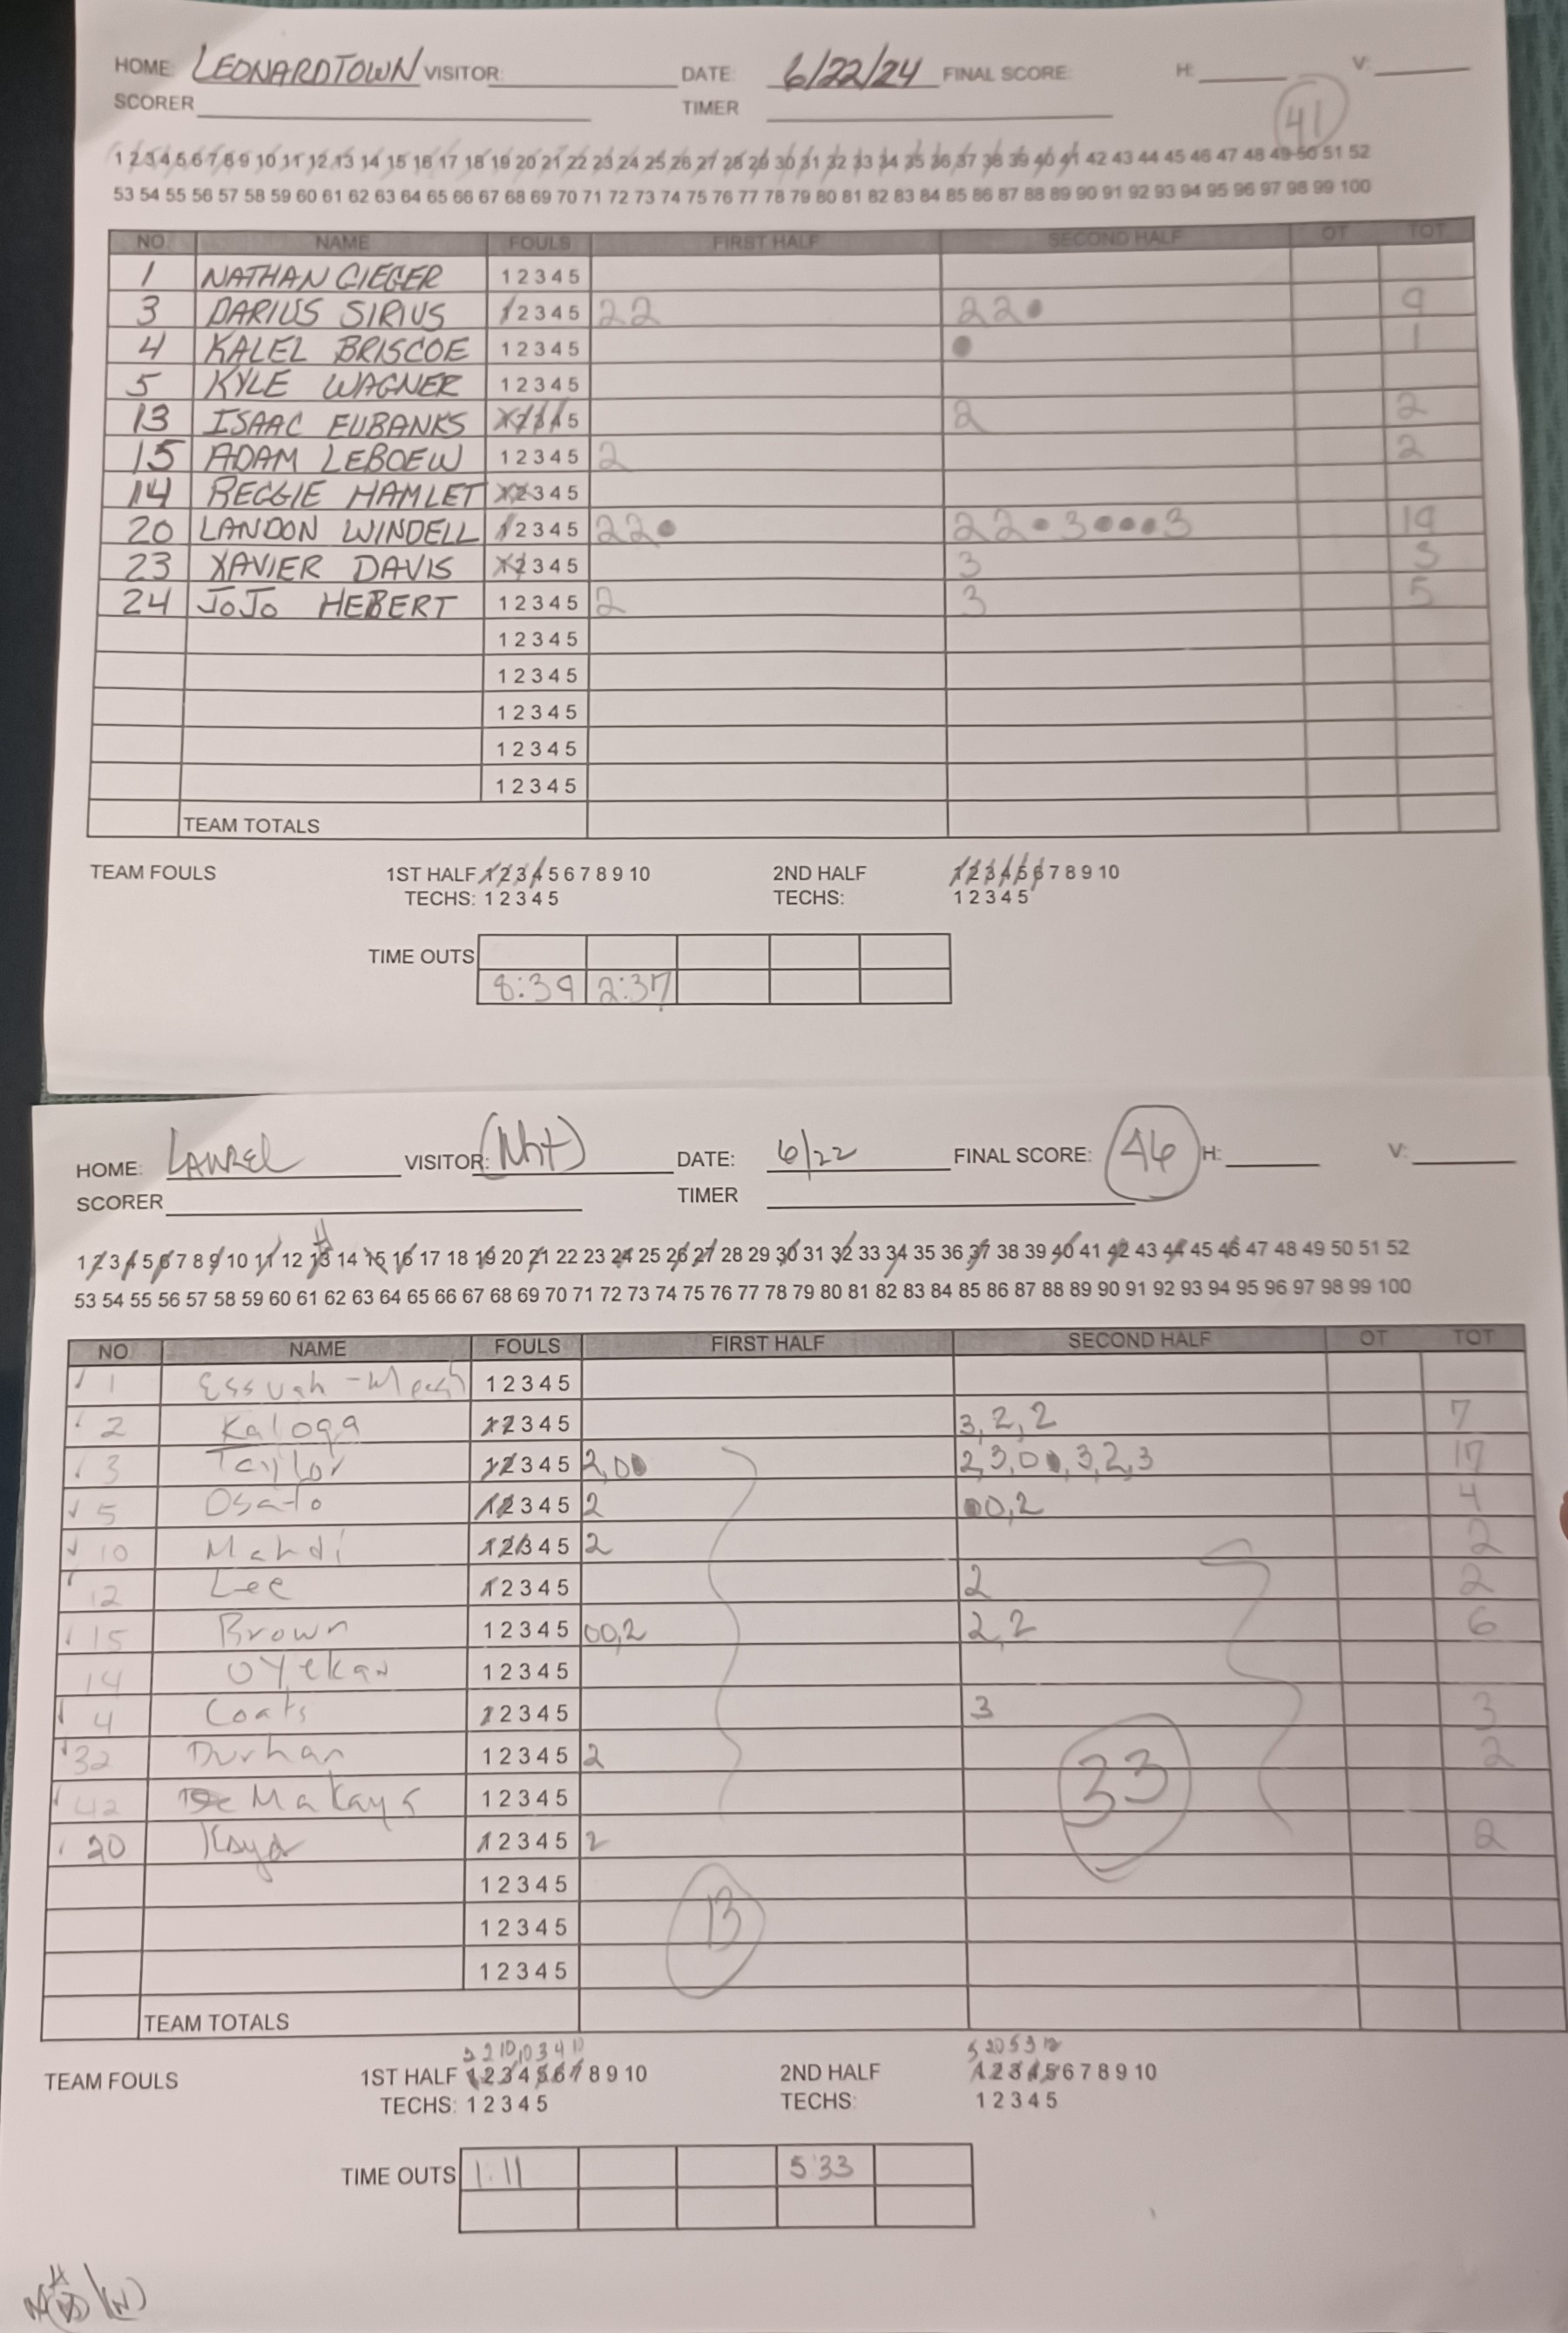 HOME: LEONARDTOWN VISITOR: DATE: 6/22/24 FINAL SCORE: H: V:
SCORER TIMER 41
1 2 3 4 5 6 7 8 9 10 11 12 13 14 15 16 17 18 19 20 21 22 23 24 25 26 27 28 29 30 31 32 33 34 35 36 37 38 39 40 41 42 43 44 45 46 47 48 49 50 51 52
53 54 55 56 57 58 59 60 61 62 63 64 65 66 67 68 69 70 71 72 73 74 75 76 77 78 79 80 81 82 83 84 85 86 87 88 89 90 91 92 93 94 95 96 97 98 99 100
NO. NAME FOULS FIRST HALF SECOND HALF OT TOT
1 NATHAN GIEGER 1 2 3 4 5
3 DARIUS SIRIUS 1 2 3 4 5 2 2 2 2 ● 9
4 KALEL BRISCOE 1 2 3 4 5 ● 1
5 KYLE WAGNER 1 2 3 4 5
13 ISAAC EUBANKS 1 2 3 4 5 2 2
15 ADAM LEBOEW 1 2 3 4 5 2 2
14 REGGIE HAMLET 1 2 3 4 5
20 LANDON WINDELL 1 2 3 4 5 2 2 ● 2 2 ● 3 ● ● ● ● 3 19
23 XAVIER DAVIS 1 2 3 4 5 3 3
24 JOJO HEBERT 1 2 3 4 5 2 3 5
1 2 3 4 5
1 2 3 4 5
1 2 3 4 5
1 2 3 4 5
1 2 3 4 5
TEAM TOTALS
TEAM FOULS 1ST HALF 1 2 3 4 5 6 7 8 9 10 2ND HALF 1 2 3 4 5 6 7 8 9 10
TECHS: 1 2 3 4 5 TECHS: 1 2 3 4 5
TIME OUTS
8:39 2:37
HOME: LAUREL VISITOR: (Wht) DATE: 6/22 FINAL SCORE: 46 H: V:
SCORER TIMER
1 2 3 4 5 6 7 8 9 10 11 12 13 14 15 16 17 18 19 20 21 22 23 24 25 26 27 28 29 30 31 32 33 34 35 36 37 38 39 40 41 42 43 44 45 46 47 48 49 50 51 52
53 54 55 56 57 58 59 60 61 62 63 64 65 66 67 68 69 70 71 72 73 74 75 76 77 78 79 80 81 82 83 84 85 86 87 88 89 90 91 92 93 94 95 96 97 98 99 100
NO. NAME FOULS FIRST HALF SECOND HALF OT TOT
1 Essuah-1 2 3 4 5
2 Kaloga 1 2 3 4 5 3, 2, 2 7
3 Taylor 1 2 3 4 5 2, 0● 2, 3, 0●, 3, 2, 3 17
5 Osato 1 2 3 4 5 2 ●0, 2 4
10 Mahdi 1 2 3 4 5 2 2
12 Lee 1 2 3 4 5 2 2
15 Brown 1 2 3 4 5 00, 2 2, 2 6
14 Oyekan 1 2 3 4 5
4 Coats 1 2 3 4 5 3 3
32 Durhan 1 2 3 4 5 2 2
42 DeMakays 1 2 3 4 5 33
20 1 2 3 4 5 2 2
1 2 3 4 5
1 2 3 4 5 13
1 2 3 4 5
TEAM TOTALS
5 20 5 3 12
TEAM FOULS 1ST HALF 1 2 3 4 5 6 7 8 9 10 2ND HALF 1 2 3 4 5 6 7 8 9 10
TECHS: 1 2 3 4 5 TECHS: 1 2 3 4 5
TIME OUTS 1:11 5:33